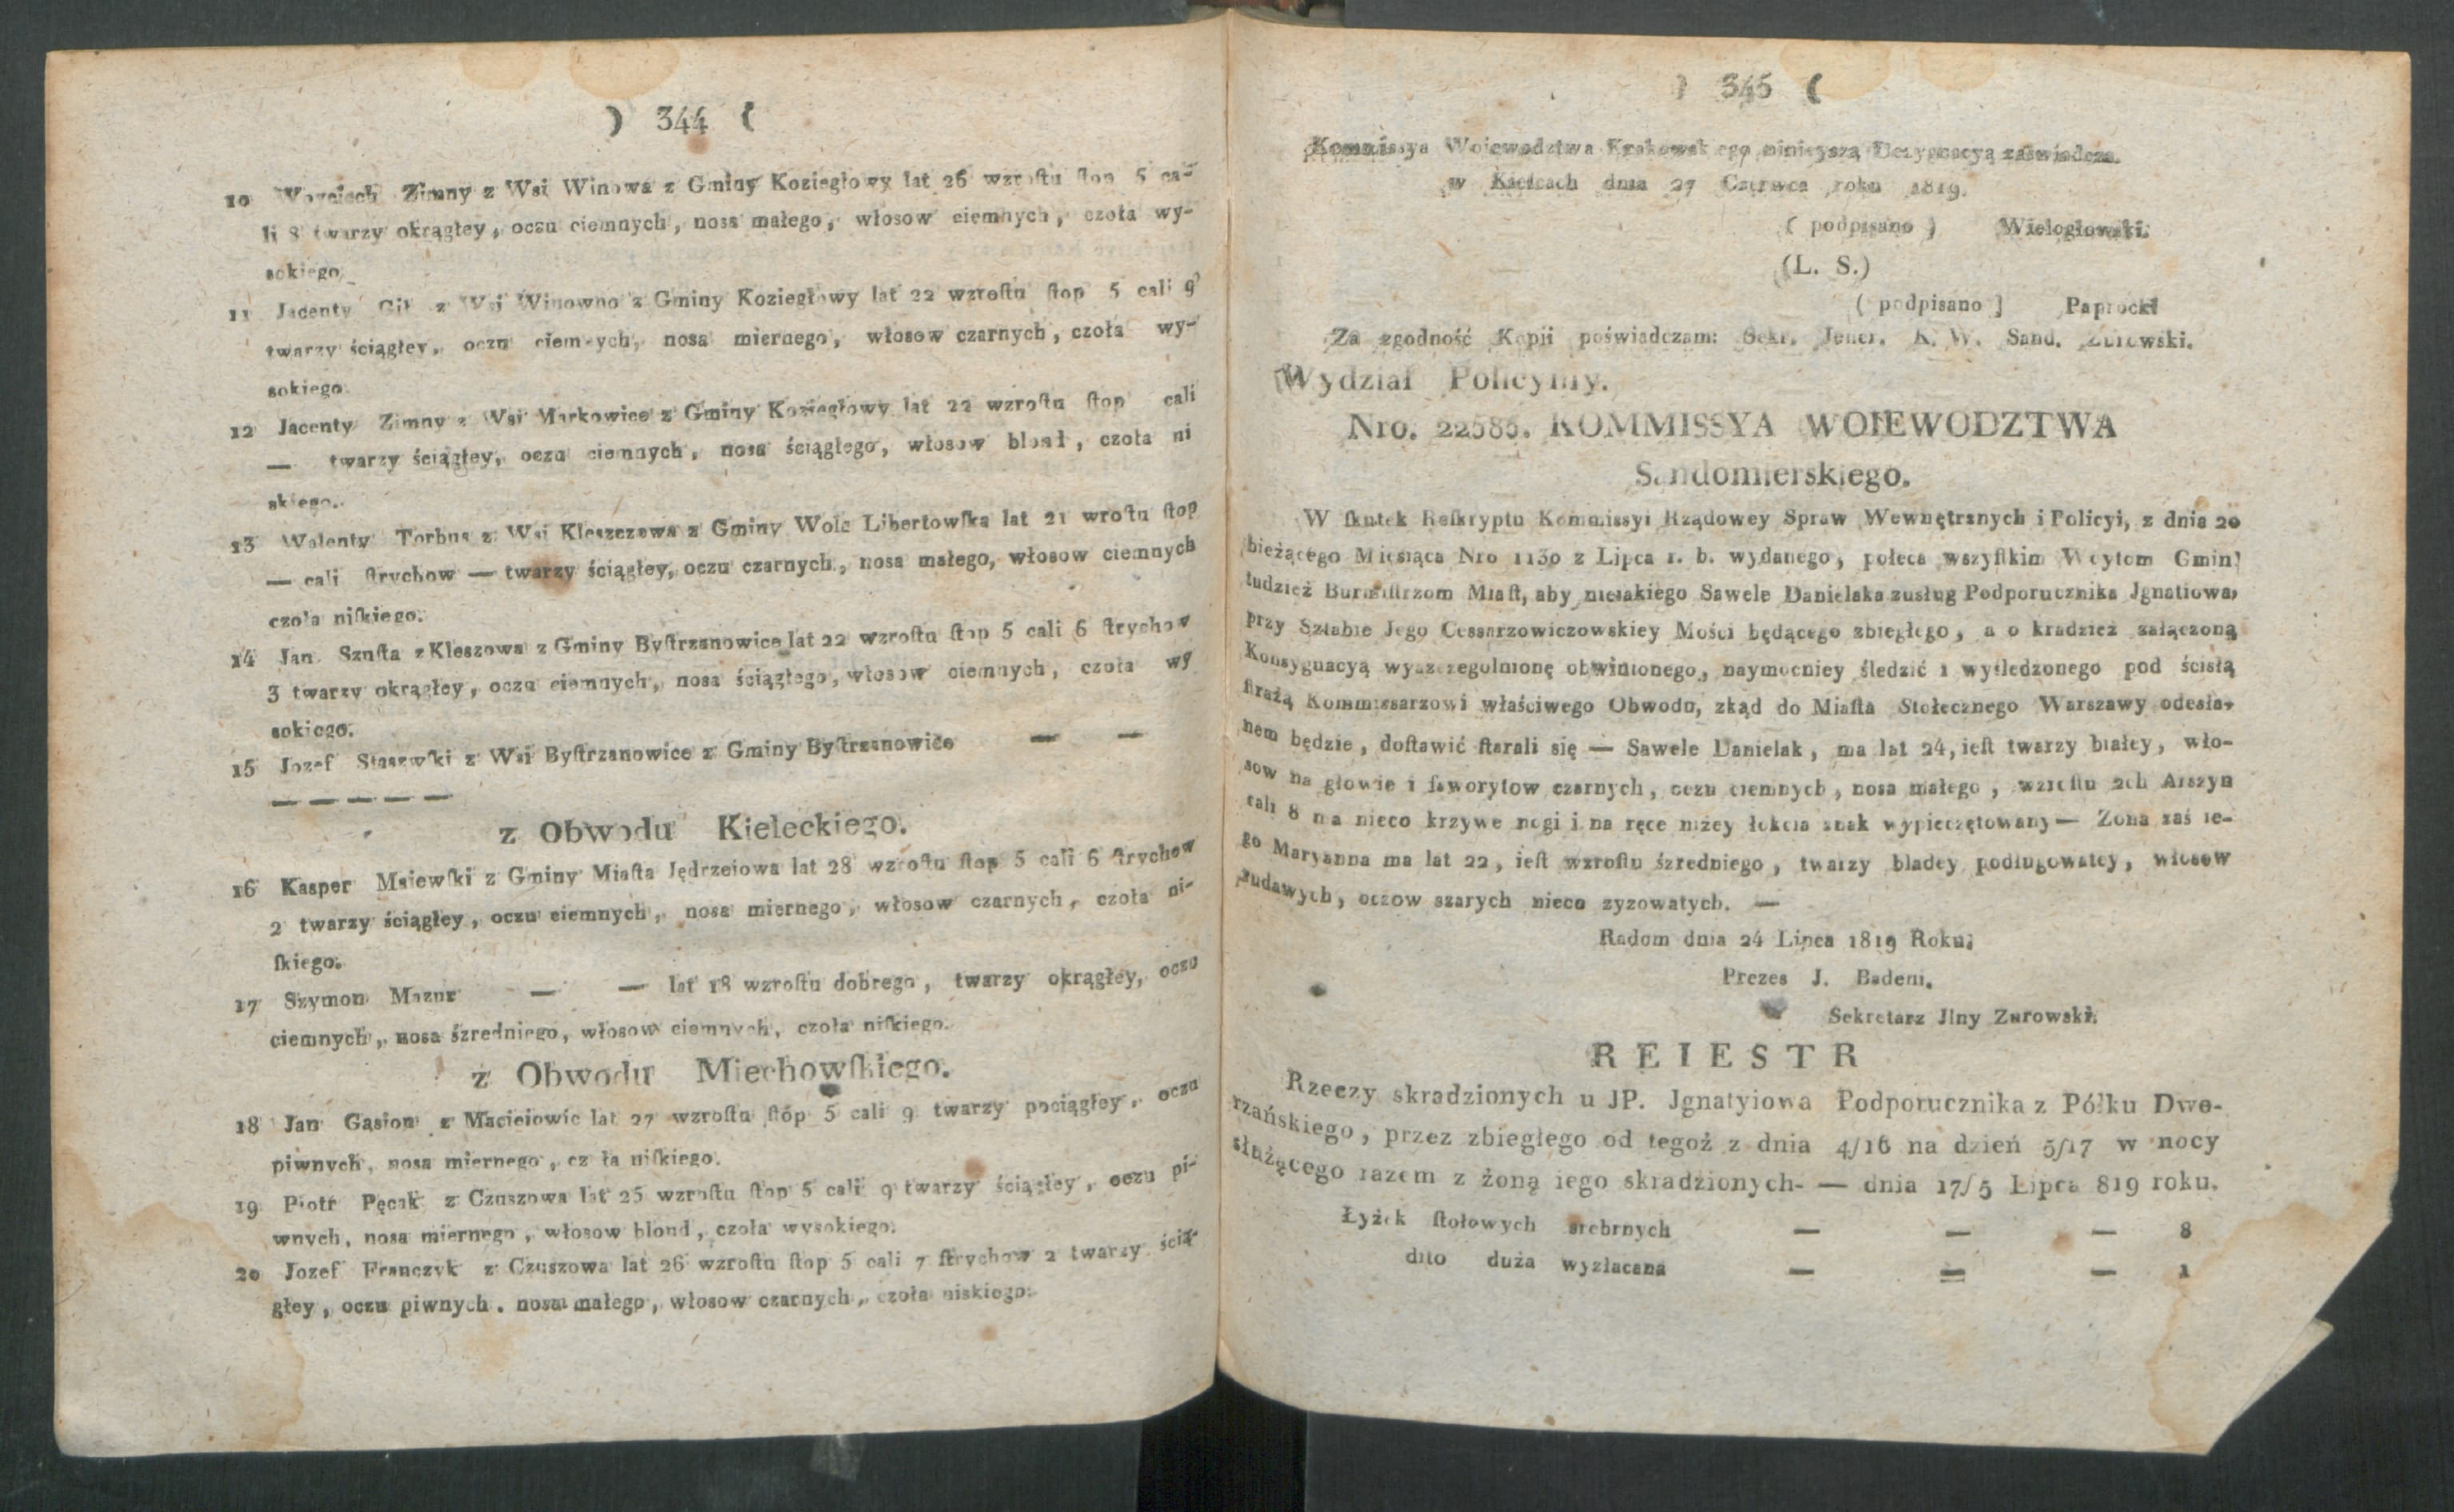 ) 344 (
10 Woyciech Zimny z Wsi Winowa z Gminy Koziegłowy lat 26 wzrostu stop 5 ca-
li 8 twarzy okrągłey, oczu ciemnych, nosa małego, włosow ciemnych, czoła wy-
sokiego
11 Jacenty z Wsi Winowno z Gminy Koziegłowy lat 22 wzrostu stop 5 cali 9
twarzy ściągłey, oczu ciemnych, nosa miernego, włosow czarnych, czoła wy-
sokiego.
12 Jacenty Zimny z Wsi Markowice z Gminy Koziegłowy lat 22 wzrostu stop cali
— twarzy ściągłey, oczu ciemnych, nosa ściągłego, włosow blond, czoła ni
skiego.
13 Walenty Torbus z Wsi Kleszczewa z Gminy Wola Libertowska lat 21 wrostu stop
— cali strychow — twarzy ściągłey, oczu czarnych, nosa małego, włosow ciemnych
czoła niskiego.
14 Jan Szusta z Kleszowa z Gminy Bystrzanowice lat 22 wzrostu stop 5 cali 6 strychow
3 twarzy okrągłey, oczu ciemnych, nosa ściągłego, włosow ciemnych, czoła wy
sokiego.
15 Jozef Staszewski z Wsi Bystrzanowice z Gminy Bystrzanowice — —
— — — — —
z Obwodu Kieleckiego.
16 Kasper Maiewski z Gminy Miasta Jędrzeiowa lat 28 wzrostu stop 5 cali 6 strychow
2 twarzy ściągłey, oczu ciemnych, nosa miernego, włosow czarnych, czoła ni-
skiego.
17 Szymon Mazur — — lat 18 wzrostu dobrego, twarzy okrągłey, oczu
ciemnych, nosa śzredniego, włosow ciemnych, czoła niskiego.
z Obwodu Miechowskiego.
18 Jan Gąsion z Macieiowic lat 27 wzrostu stóp 5 cali 9 twarzy pociągłey, oczu
piwnych, nosa miernego, cz ła niskiego.
19 Piotr Pęcak z Czuszowa lat 25 wzrostu stop 5 cali 9 twarzy ściągłey, oczu pi-
wnych, nosa miernego, włosow blond, czoła wysokiego.
20 Jozef Franczyk z Czuszowa lat 26 wzrostu stop 5 cali 7 strychow 2 twarzy ścią-
głey, oczu piwnych, nosa małego, włosow czarnych, czoła niskiego.
) 345 (
Kommissya Woiewodztwa Krakowskiego ninieyszą Dezygnacyą zaświadcza.
w Kielcach dnia 27 Czerwca roku 1819.
( podpisano ) Wielogłowski.
(L. S.)
( podpisano ] Paprocki
Za zgodność Kopii poświadczam: Sekr. Jener. K. W. Sand. Zurowski.
Wydział Policyiny.
Nro. 22585. KOMMISSYA WOIEWODZTWA
Sandomierskiego.
W skutek Reskryptu Kommissyi Rządowey Spraw Wewnętrznych i Policyi, z dnia 20
bieżącego Miesiąca Nro 1130 z Lipca r. b. wydanego, poleca wszystkim Woytom Gmin
tudzież Burmistrzom Miast, aby nieiakiego Sawele Danielaka zusług Podporucznika Jgnatiowa,
przy Sztabie Jego Cessarzowiczowskiey Mości będącego zbiegłego, a o kradzież załączoną
Konsygnacyą wyszczegolnionę obwinionego, naymocniey śledzić i wyśledzonego pod ścisłą
strażą Kommissarzowi właściwego Obwodu, zkąd do Miasta Stołecznego Warszawy odesła-
nem będzie, dostawić starali się — Sawele Danielak, ma lat 24, iest twarzy białey, wło-
sow na głowie i faworytow czarnych, oczu ciemnych, nosa małego, wzrostu 2ch Arszyn
cali 8 ma nieco krzywe nogi i na ręce niżey łokcia znak wypieczętowany — Zona zaś ie-
go Maryanna ma lat 22, iest wzrostu śzredniego, twarzy bladey podługowatey, włosow
rudawych, oczow szarych nieco zyzowatych. —
Radom dnia 24 Lipca 1819 Roku.
Prezes J. Badeni.
Sekretarz Jlny Zurowski.
REIESTR
Rzeczy skradzionych u JP. Jgnatyiowa Podporucznika z Półku Dwo-
rzańskiego, przez zbiegłego od tegoż z dnia 4/16 na dzień 5/17 w nocy
służącego razem z żoną iego skradzionych- — dnia 17/5 Lipca 819 roku.
Łyżek stołowych srebrnych — — — 8
dito duża wyzłacana — — — 1